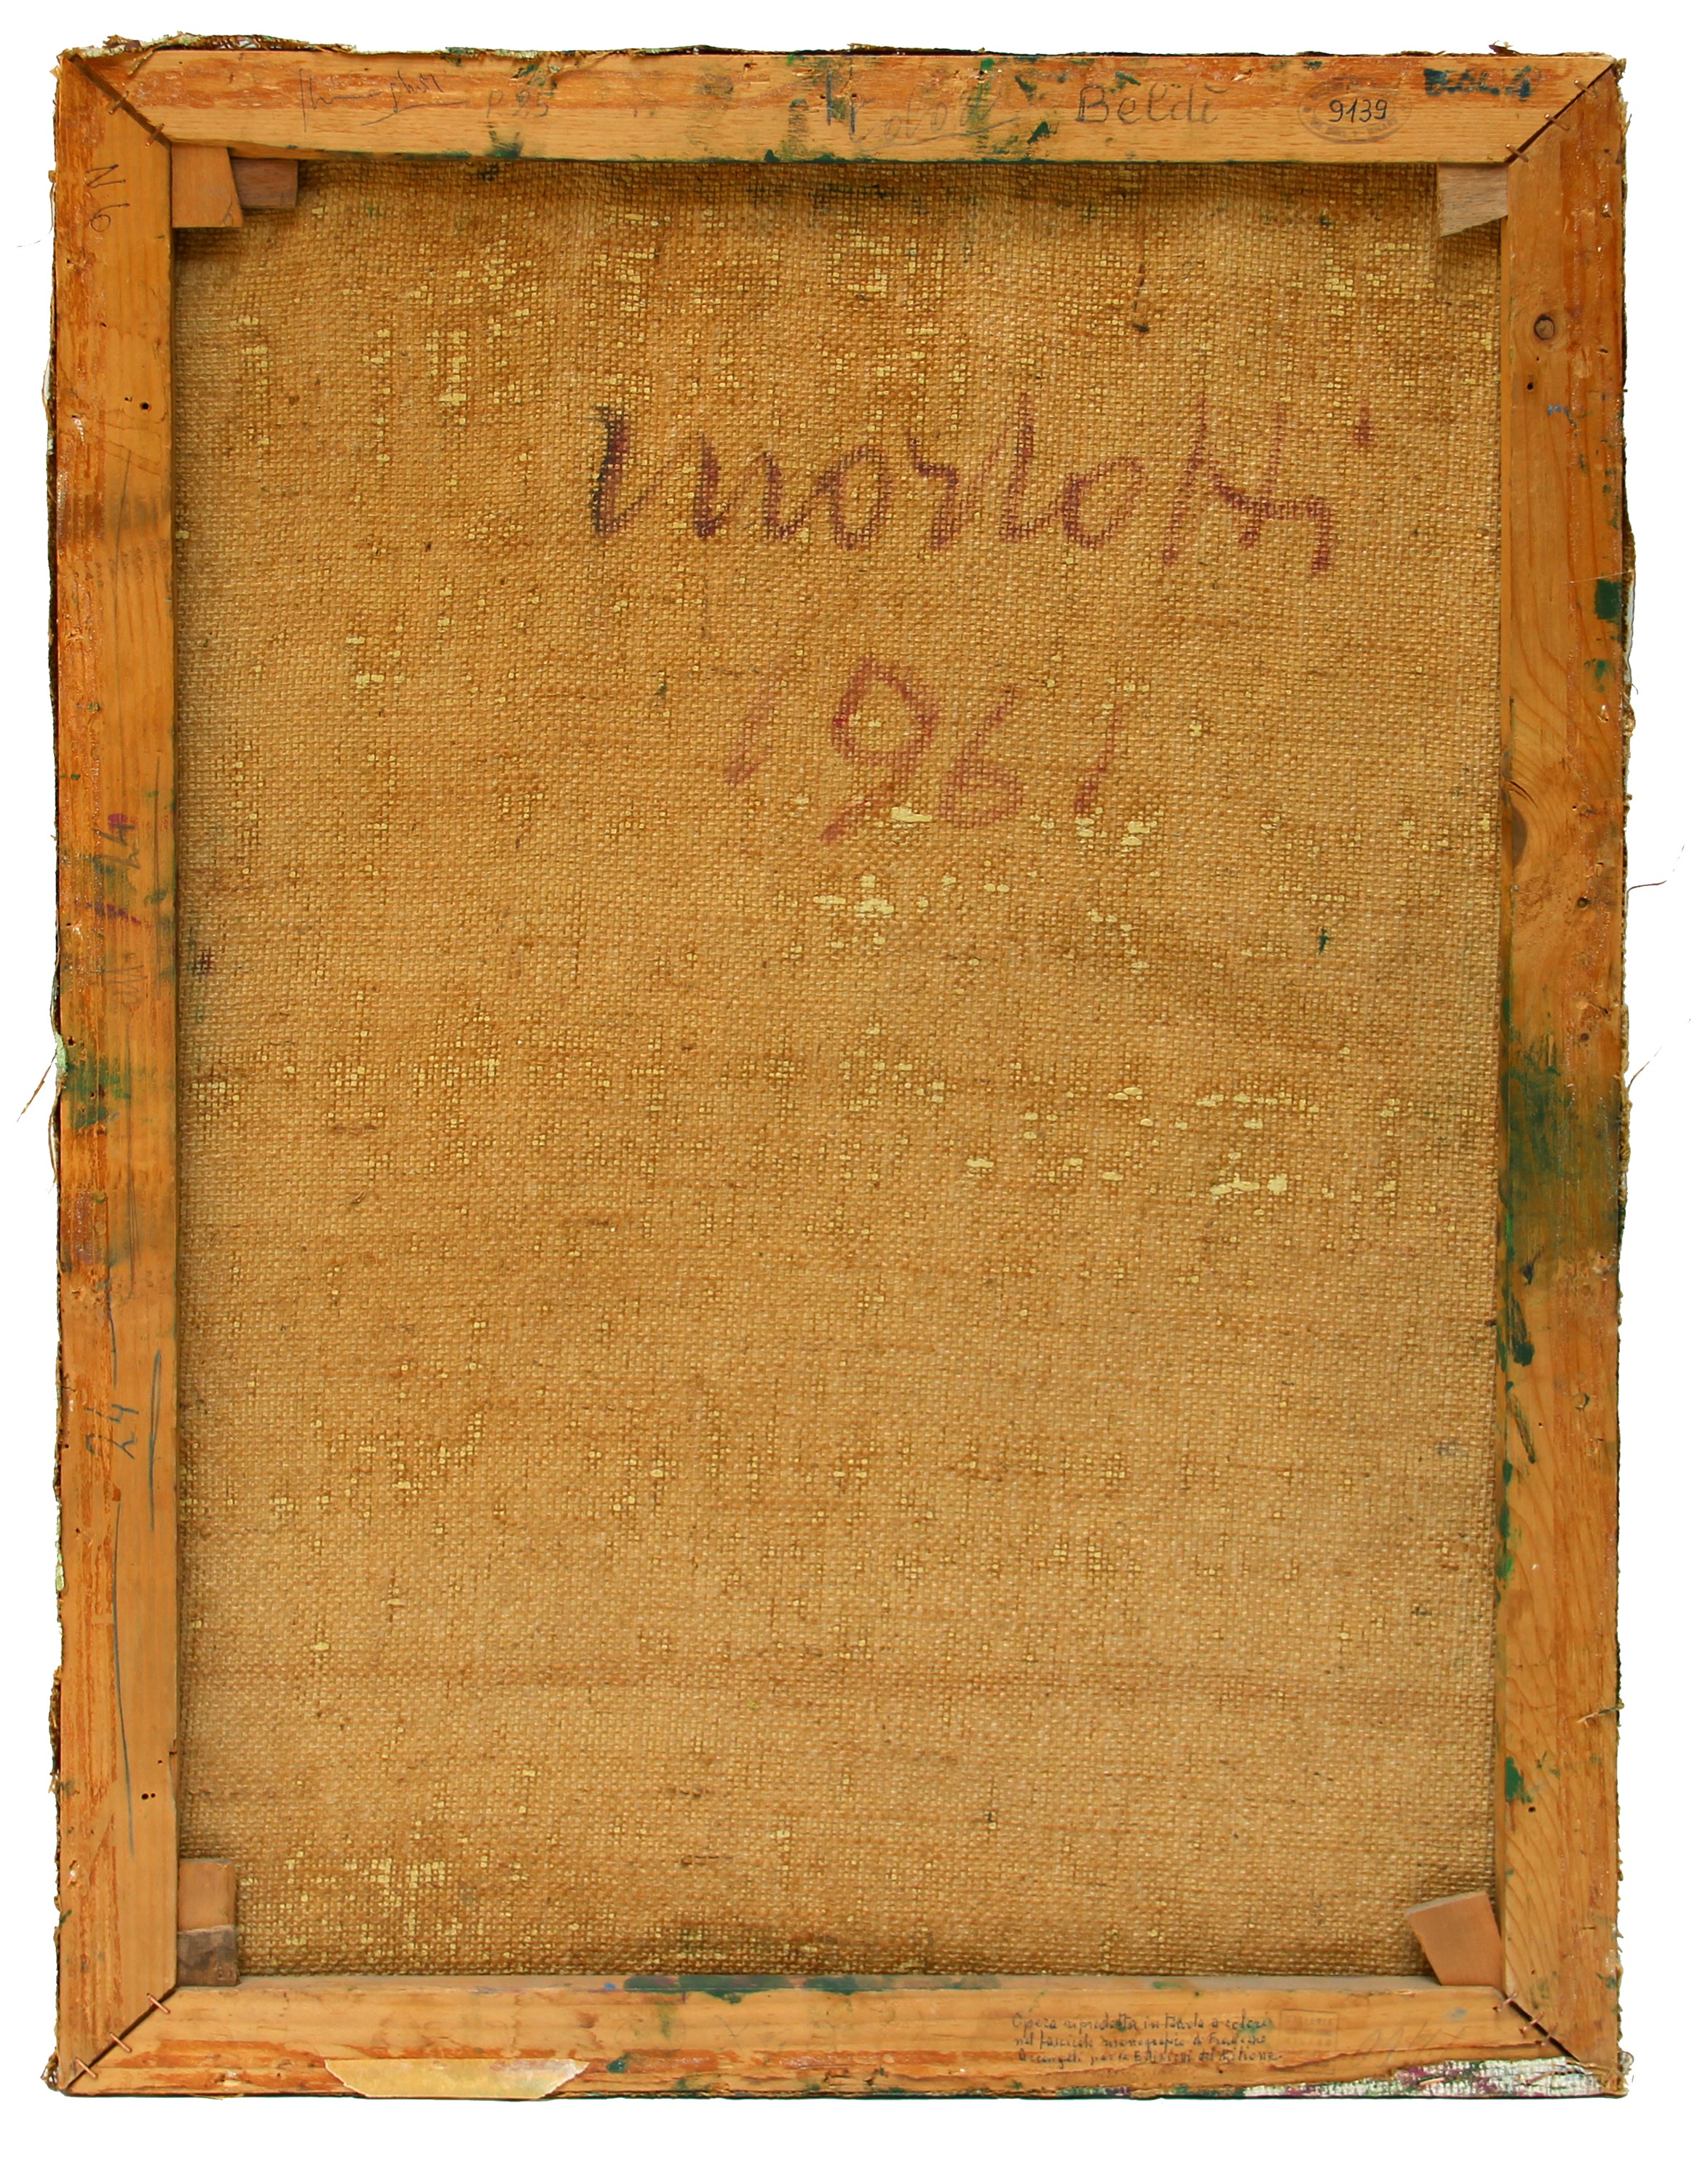 P 25
Beldì
9139
N 6
morlotti
1961
24
24
Opera riprodotta in tavola a colori
nel fascicolo monografico di Francesco
Arcangeli per le Edizioni del Milione